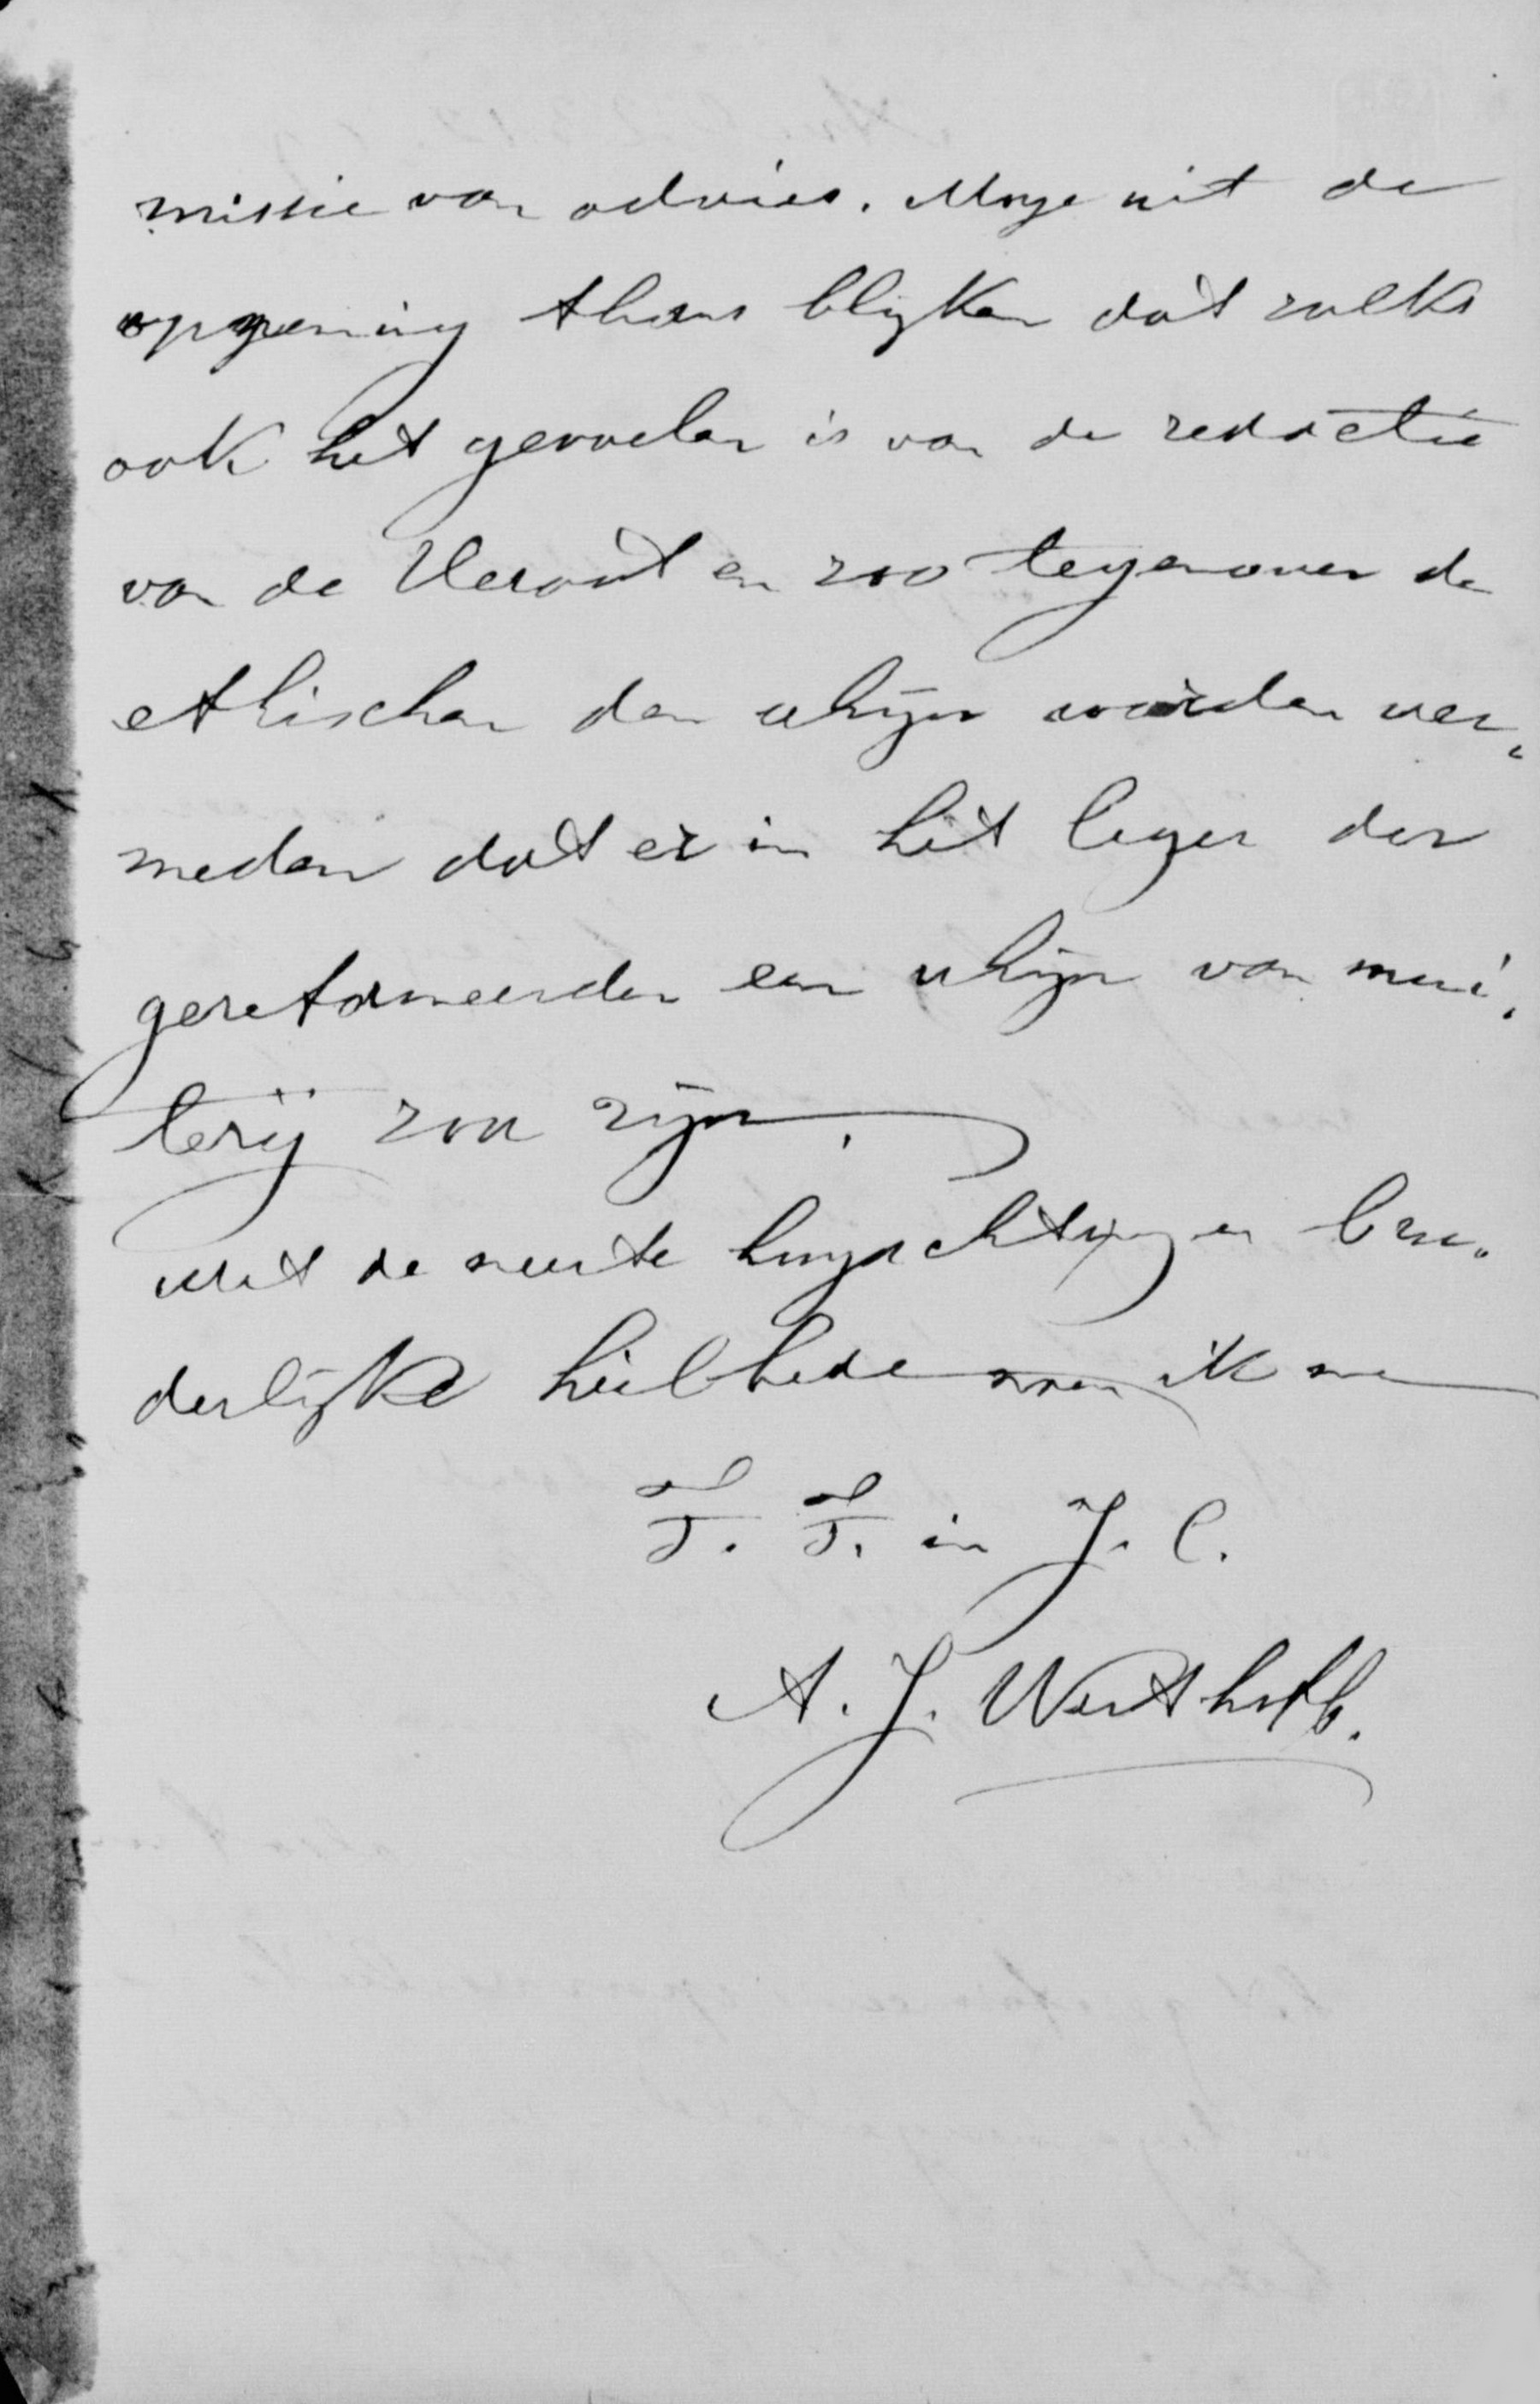 missie van advies. Moge uit de
opgening thans blijken dat zulks
ook het gevoelen is van de redactie
van de Heraut en zoo tegenover de
ethischen den schijn worden ver„
meden dat er in het leger der
gereformeerden een schijn van mui„
terij zou zijn.
Met de meeste hoogachting en broe„
derlijke heilbede noem ik me
T. T. in J. C.
A. J.